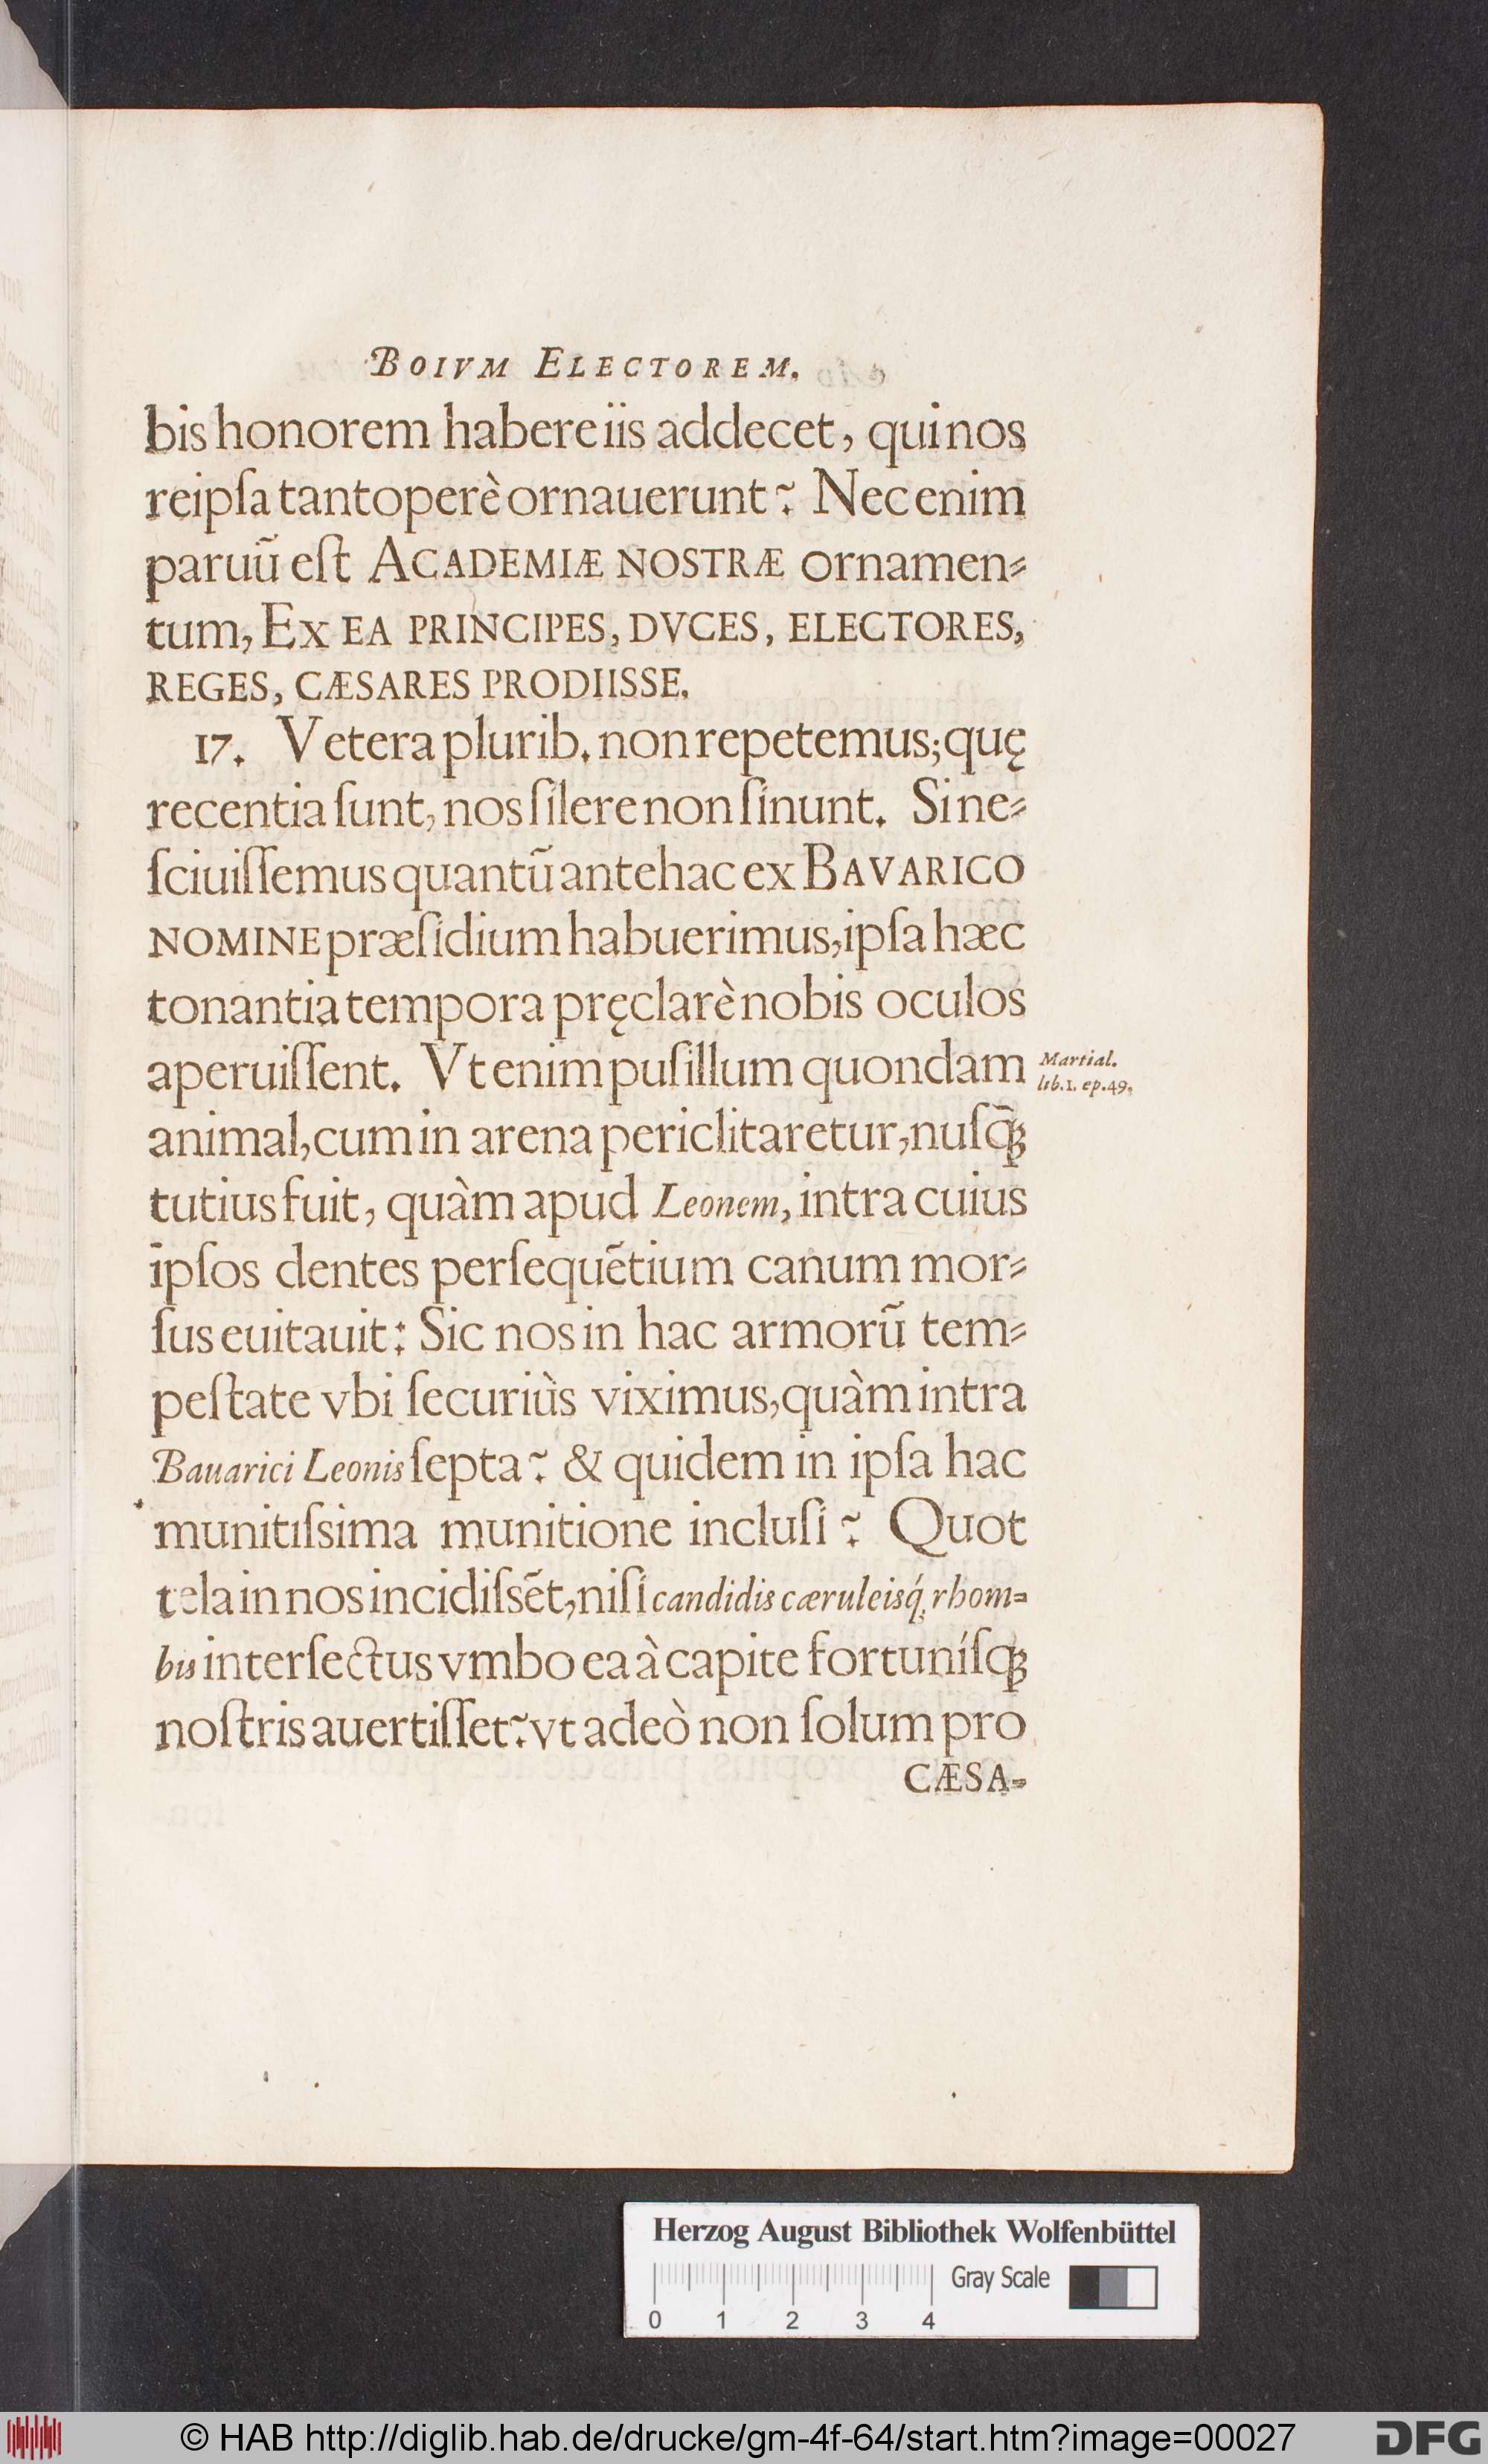 BOIVM ELECTOREM.
bis honorem habere iis addecet, qui nos
reipſa tantoperè ornauerunt? Nec enim
paruũ eſt ACADEMIÆ NOSTRÆ ornamen-
tum, EX EA PRINCIPES, DVCES, ELECTORES,
REGES, CÆSARES PRODIISSE.
17. Vetera plurib. non repetemus; quę
recentia ſunt, nos ſilere non ſinunt. Si ne-
ſciuiſſemus quantũ antehac ex BAVARICO
NOMINE præſidium habuerimus, ipſa hæc
tonantia tempora pręclarè nobis oculos
aperuiſſent. Vt enim puſillum quondam
Martial.
lib.1. ep.49.
animal, cum in arena periclitaretur, nuſq̃ꝫ
tutius fuit, quàm apud Leonem, intra cuius
ipſos dentes perſequẽtium canum mor-
ſus euitauit: Sic nos in hac armorũ tem-
peſtate vbi ſecuriùs viximus, quàm intra
Bauarici Leonis ſepta? & quidem in ipſa hac
munitiſsima munitione incluſi? Quot
tela in nos incidiſsẽt, niſi candidis cæruleisq́; rhom-
bis interſectus vmbo ea à capite fortuníſqꝫ
noſtris auertiſſet? vt adeò non ſolum pro
CÆSA-
Herzog August Bibliothek Wolfenbüttel
Gray Scale
0 1 2 3 4
© HAB http://diglib.hab.de/drucke/gm-4f-64/start.htm?image=00027
DFG